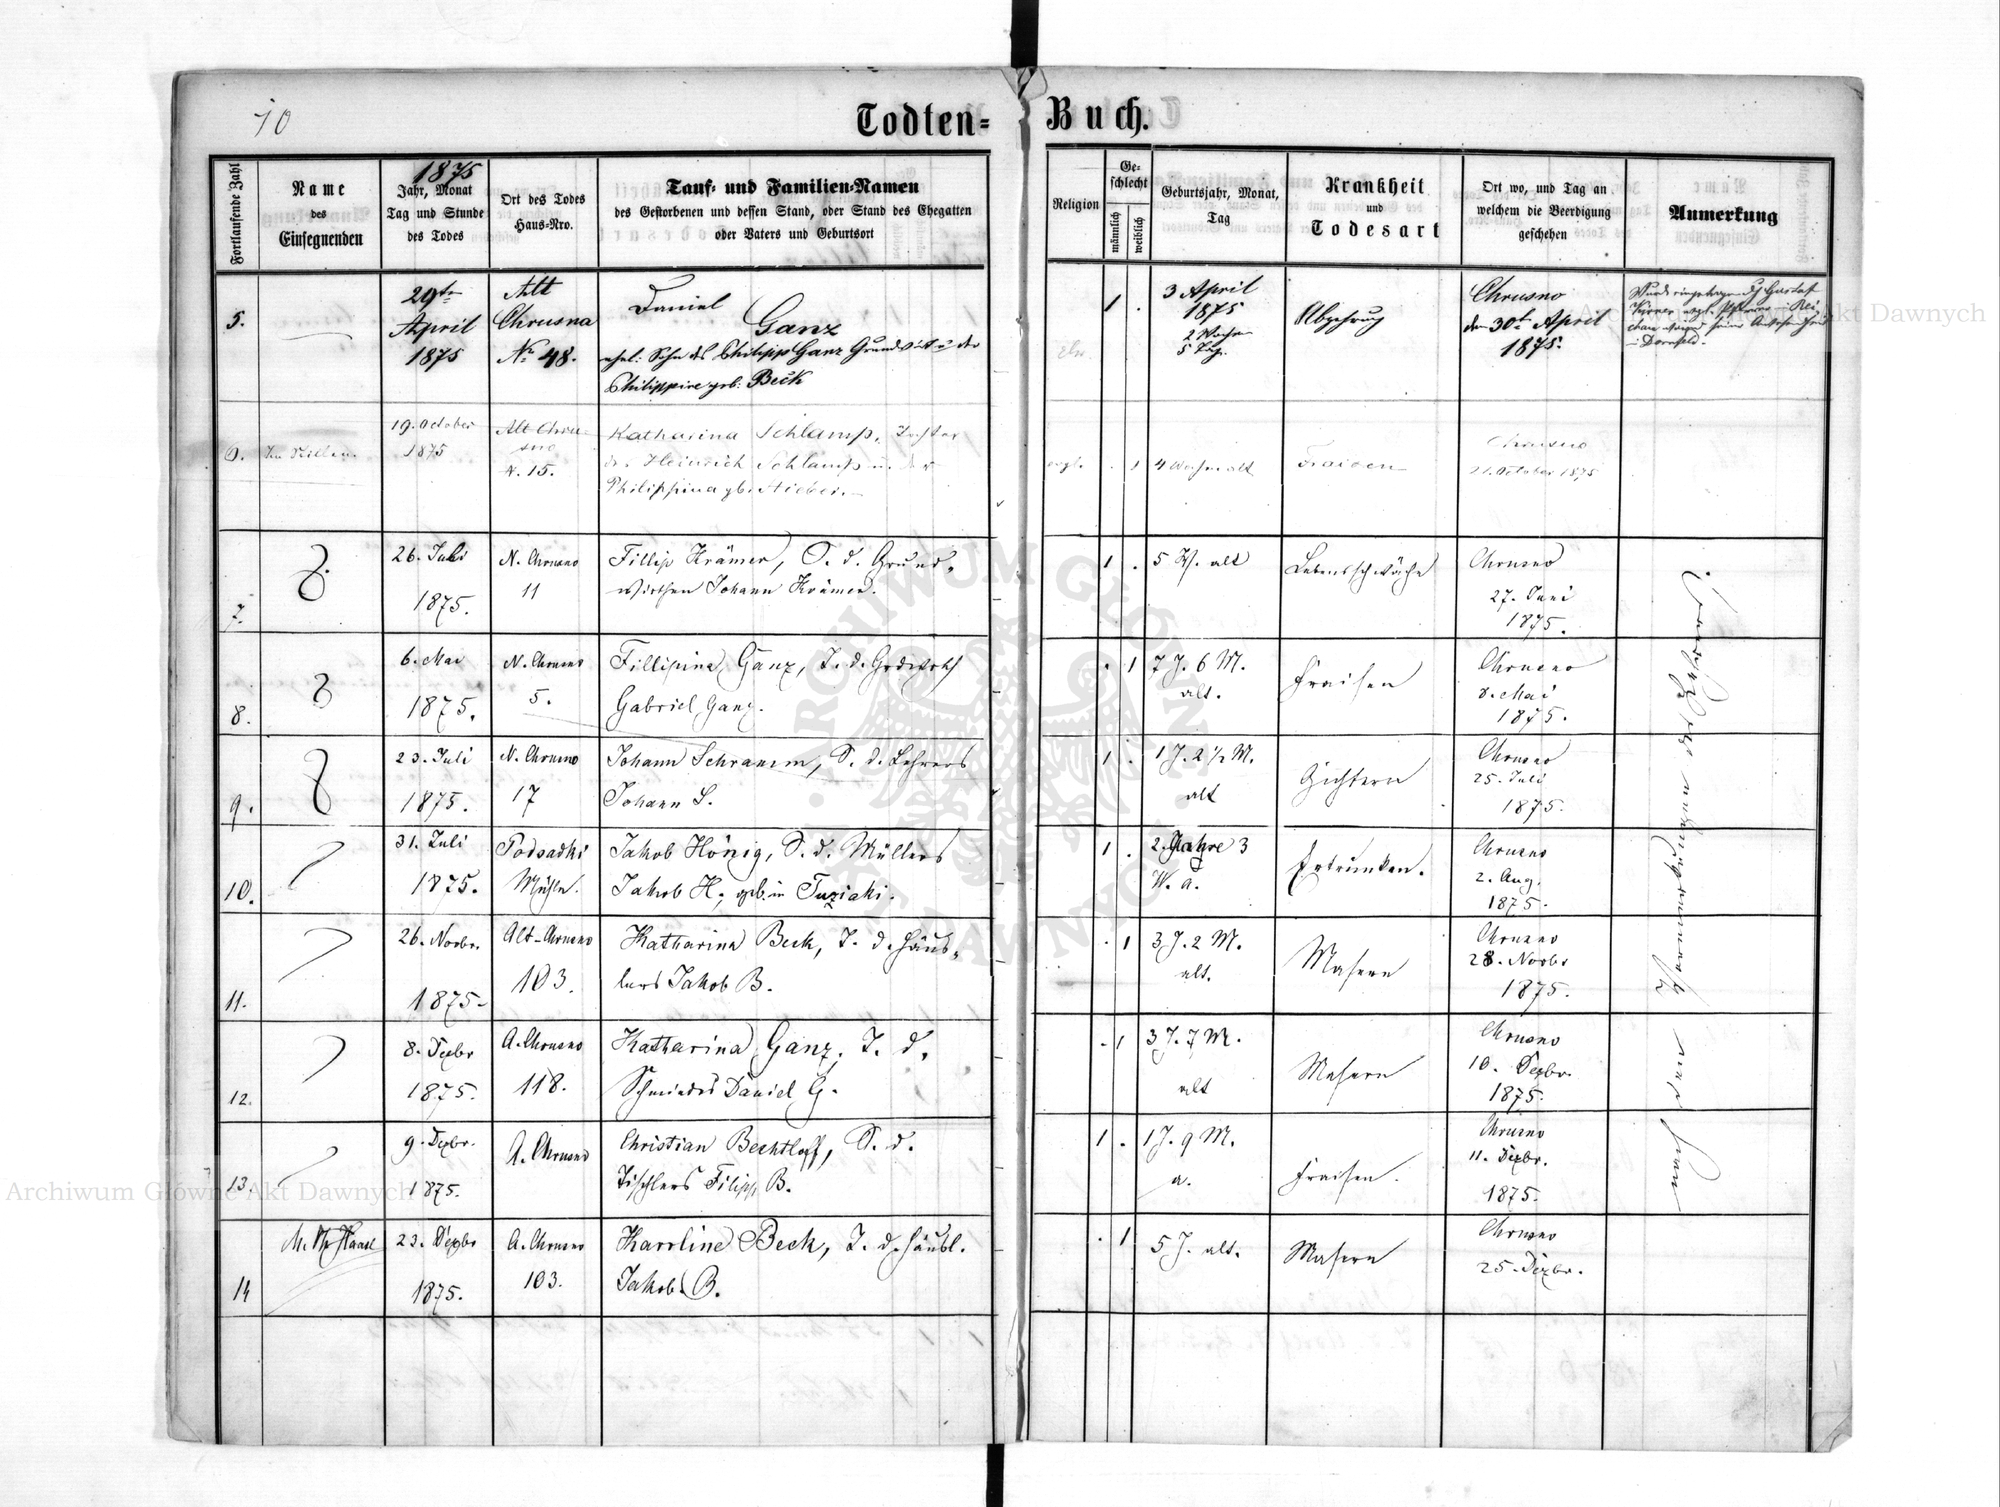 10
Todten=
Buch.
Fortlaufende Zahl
Name
des
Einsegnenden
1875
Jahr, Monat
Tag und Stunde
des Todes
Ort des Todes
Haus=Nro.
Tauf= und Familien=Namen
des Gestorbenen und dessen Stand, oder Stand des Ehegatten
oder Vaters und Geburtsort
Religion
Ge=
schlecht
männlich
weiblich
Geburtsjahr, Monat,
Tag
Krankheit
und
Todesart
Ort wo, und Tag an
welchem die Beerdigung
geschehen
Anmerkung
5.
29te
April
1875
Alt
Chrusna
Nr 48.
Daniel
Ganz
ehel. Sohn des Philipp Ganz Grundwirt u der
Philippine geb: Beck
1 .
3 April
1875
2 Wochen
5 Tag.
Abzehrug
Chrusno
den 30te April
1875.
6.
19. October
1875
Alt Chru-
sno
N. 15.
Katharina Schlamp, Tochter
des Heinrich Schlamp u. der
Philippina gb.
evgl.
. 1
4 Wochen alt
Fraisen
Chrusno
21. October 1875
7.
26. Juli
1875.
N. Chrusno
11
Fillip Krämer, S. d. Grund-
wirthen Johann Krämer.
1 .
5 W. alt
Lebensschwäche
Chrusno
27. Juni
1875.
8.
6. Mai
1875.
N. Chrusno
5.
Fillipina Ganz, T. d. Grdwrth
Gabriel Ganz.
. 1
7 J. 6 M.
alt.
Fraisen
Chrusno
8. Mai
1875.
9.
23. Juli
1875.
N. Chrusno
17
Johann Schramm, S. d. Lehrers
Johann S.
1 .
1 J. 2 1/2 M.
alt
Gichtern
Chrusno
25. Juli
1875.
10.
31. Juli
1875.
Podsadki
Mühle.
Jakob Hönig, S. d. Müllers
Jakob H., geb. in
1 .
2. Jahre 3
W. a.
Ertrunken.
Chrusno
2. Aug.
1875.
11.
26. Novbr.
1875.
Alt-Chrusno
103.
Katharina Beck, T. d. Häus-
lers Jakob B.
. 1
3 J. 2 M.
alt.
Masern
Chrusno
28. Novbr
1875.
12.
8. Dezbr
1875.
A. Chrusno
118.
Katharina Ganz, T. d.
Schmiedes Daniel G.
. 1
3 J. 7 M.
alt
Masern
Chrusno
10. Dezbr.
1875.
13.
9. Dezbr.
1875.
A. Chrusno
Christian Bechtloff, S. d.
Tischlers Filipp B.
1 .
1 J. 9 M.
a.
Fraisen.
Chrusno
11. Dezbr.
1875.
14
23. Dezbr
1875.
A. Chrusno
103.
Karoline Beck, T. d. Häusl.
Jakob B.
. 1
5 J. alt.
Masern
Chrusno
25. Dezbr.
Archiwum Główne Akt Dawnych
Archiwum Główne Akt Dawnych
ARCHIWUM GŁÓWNE AKT DAWNYCH